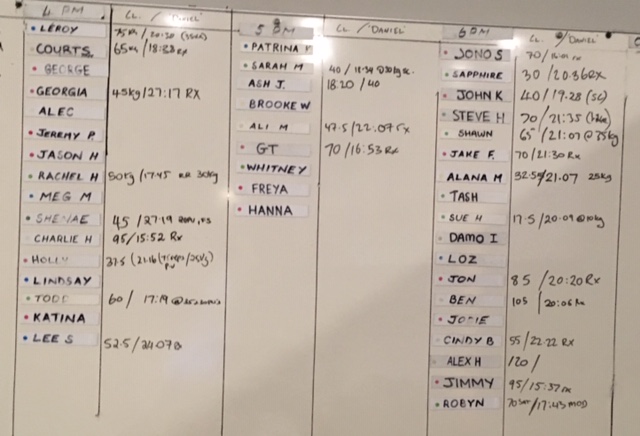 4 PM CL / DANIEL
LEROY
COURTS 65KG
GEORGE
GEORGIA 45kg/27:17 RX
ALEC
JEREMY P.
JASON H
RACHEL H 50kg /17:45 30kg
MEG M
SHENAE 45 / 27:19
CHARLIE H 95/15:52 Rx
HOLLY 37.5
LINDSAY
TODD 60 / 17:19
KATINA
LEE S 52.5/
5 PM CL / DANIEL
PATRINA P
SARAH M 40 / 18:34
ASH J. 18:20 / 40
BROOKE W
ALI M 47.5/22:07 rx
GT 70 /16:53 Rx
WHITNEY
FREYA
HANNA
6 PM CL / DANIEL
JONO S 70/
SAPPHIRE 30 / 20:36 RX
JOHN K 40/19:28 (SC)
STEVE H 70 /21:35
SHAWN 65 /21:07 @35kg
JAKE F. 70/21:30 Rx
ALANA M 32.5 /21.07 25kg
TASH
SUE H 17.5/20:09 @10kg
DAMO I
LOZ
JON 85 / 20:20 Rx
BEN 105 / 20:06 Rx
JOSIE
CINDY B 55/22:22 RX
ALEX H 120 /
JIMMY 95/15:37 rx
ROBYN /17:43 MOD